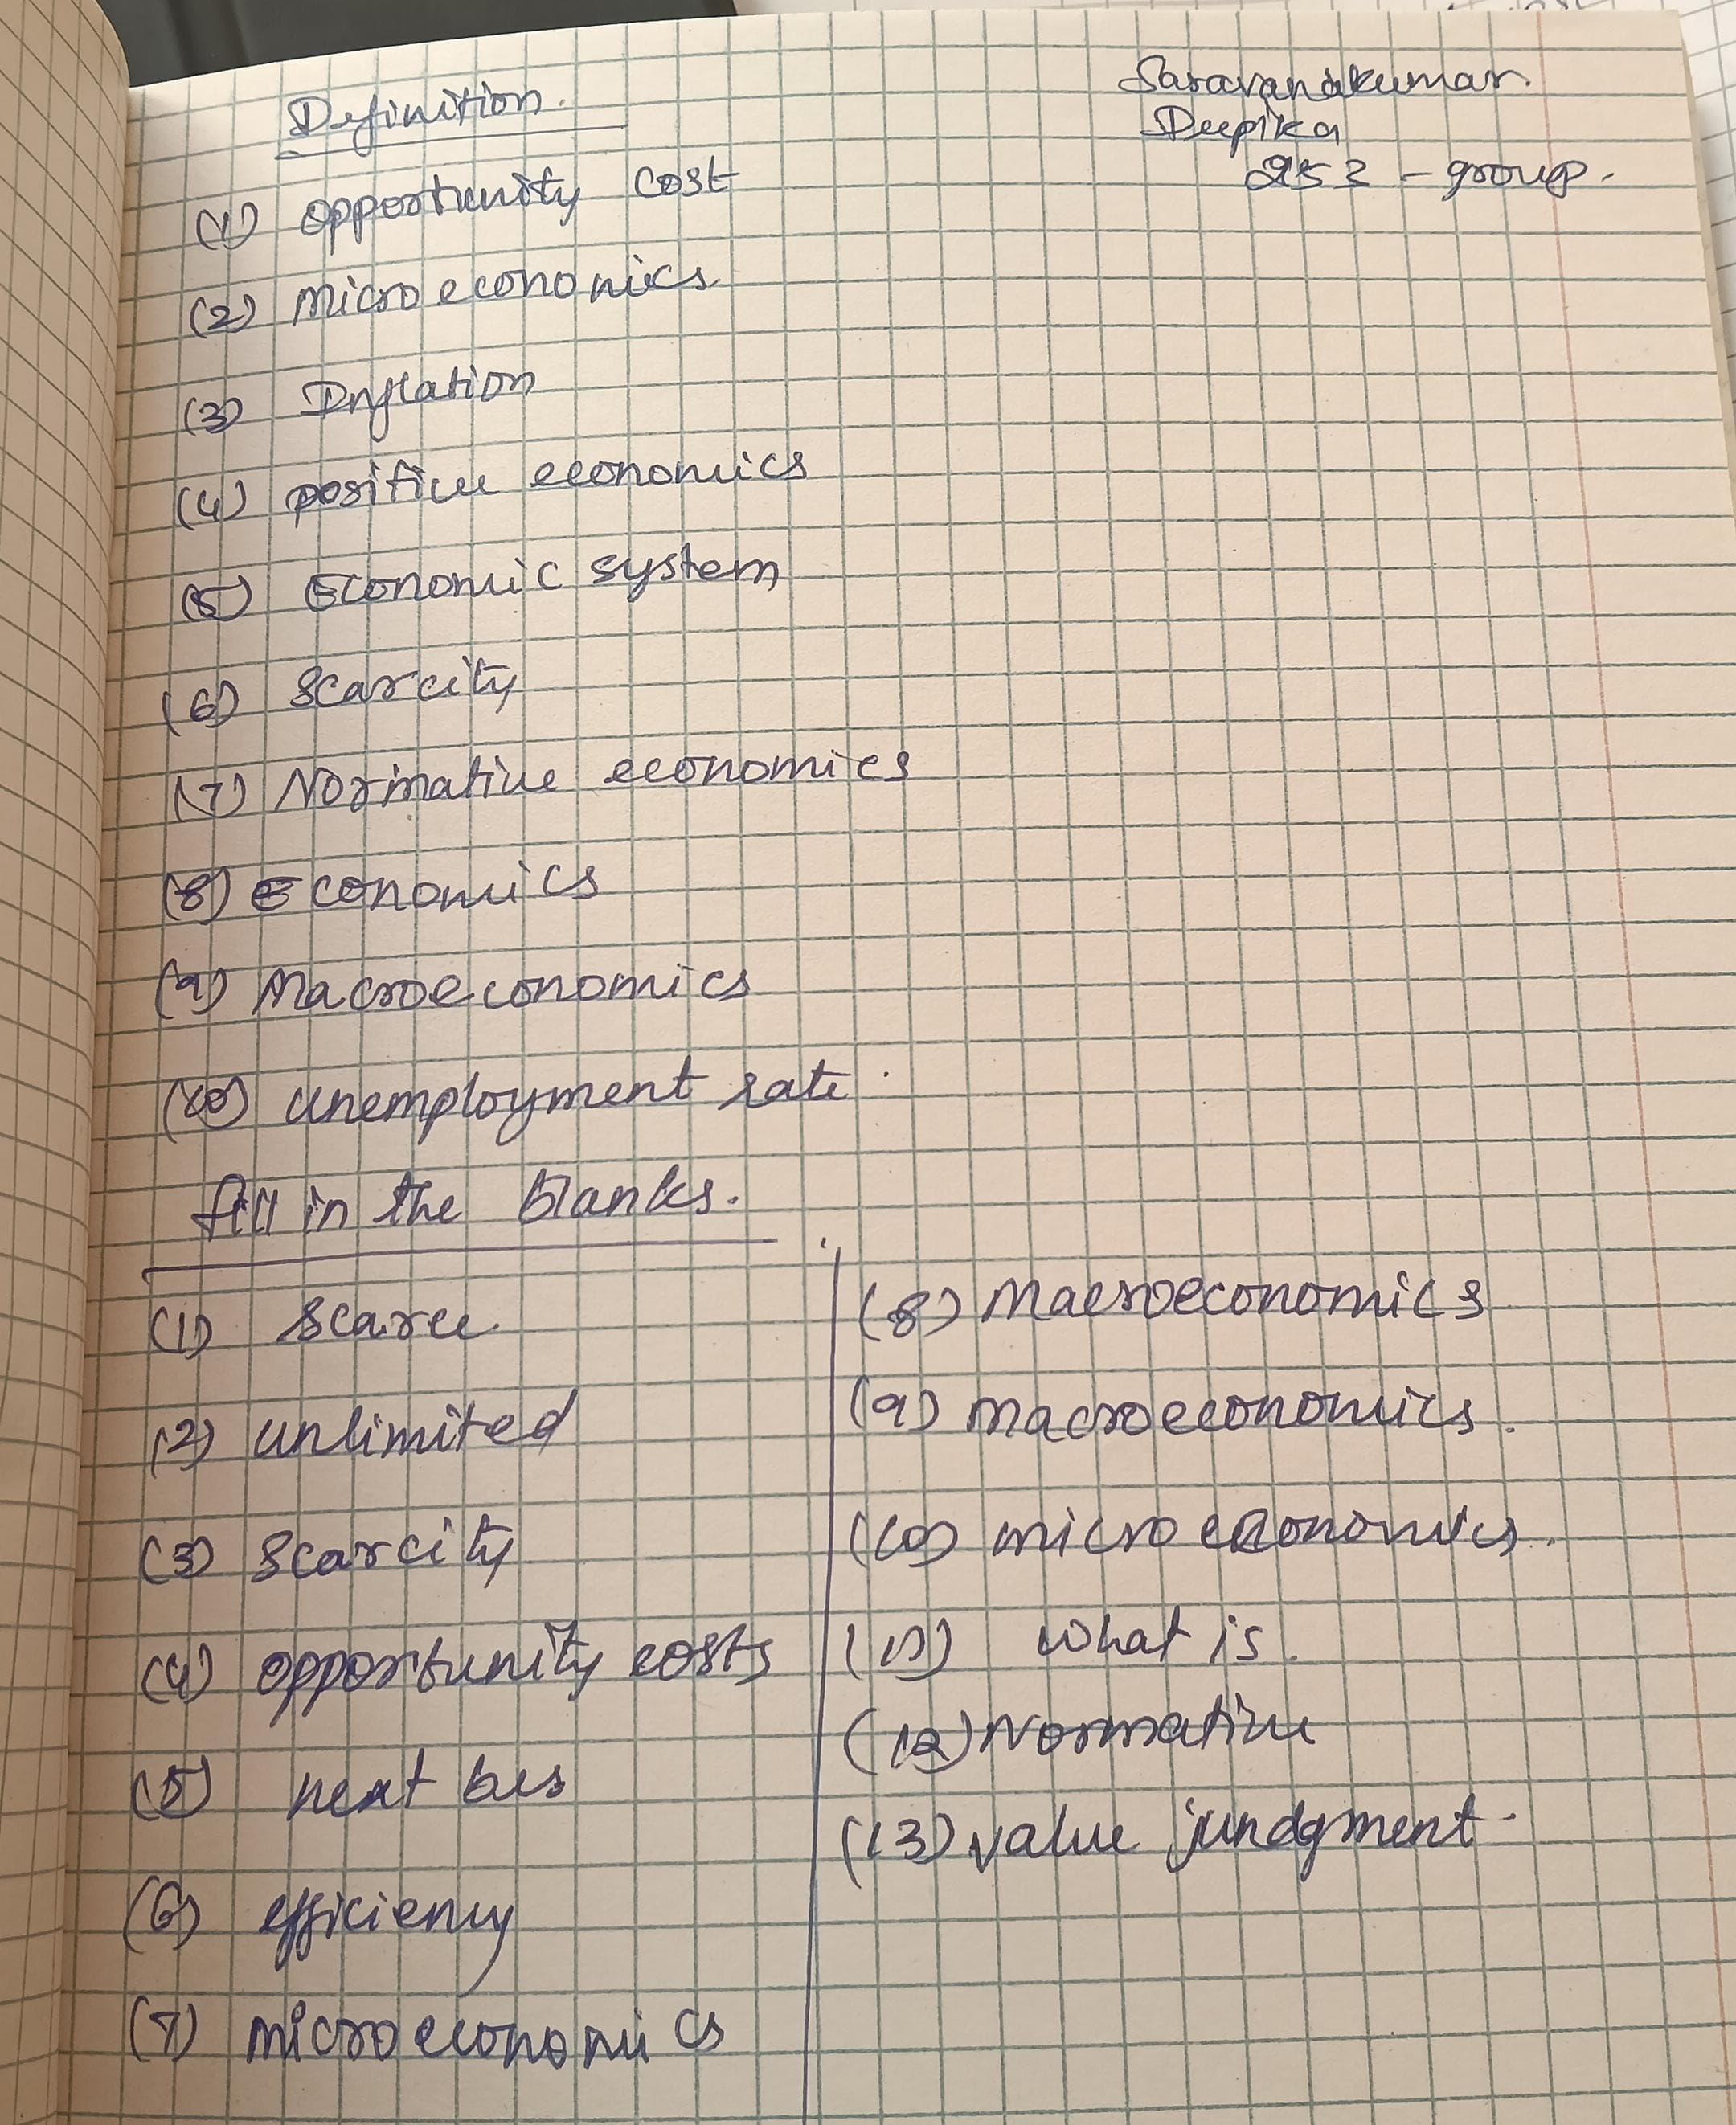 Definition.
Saravanakumar.
Deepika
253 - group.
(1) opportunity cost
(2) Microeconomics
(3) Inflation
(4) positive economics
(5) Economic system
(6) Scarcity
(7) Normative economics
(8) Economics
(9) Macroeconomics
(10) unemployment rate
fill in the blanks.
(1) Scarce
(2) unlimited
(3) Scarcity
(4) opportunity costs
(5) next bes
(6) efficiency
(7) microeconomics
(8) Macroeconomics
(9) Macroeconomics.
(10) microeconomics.
(11) what is.
(12) Normative
(13) value jundgment.